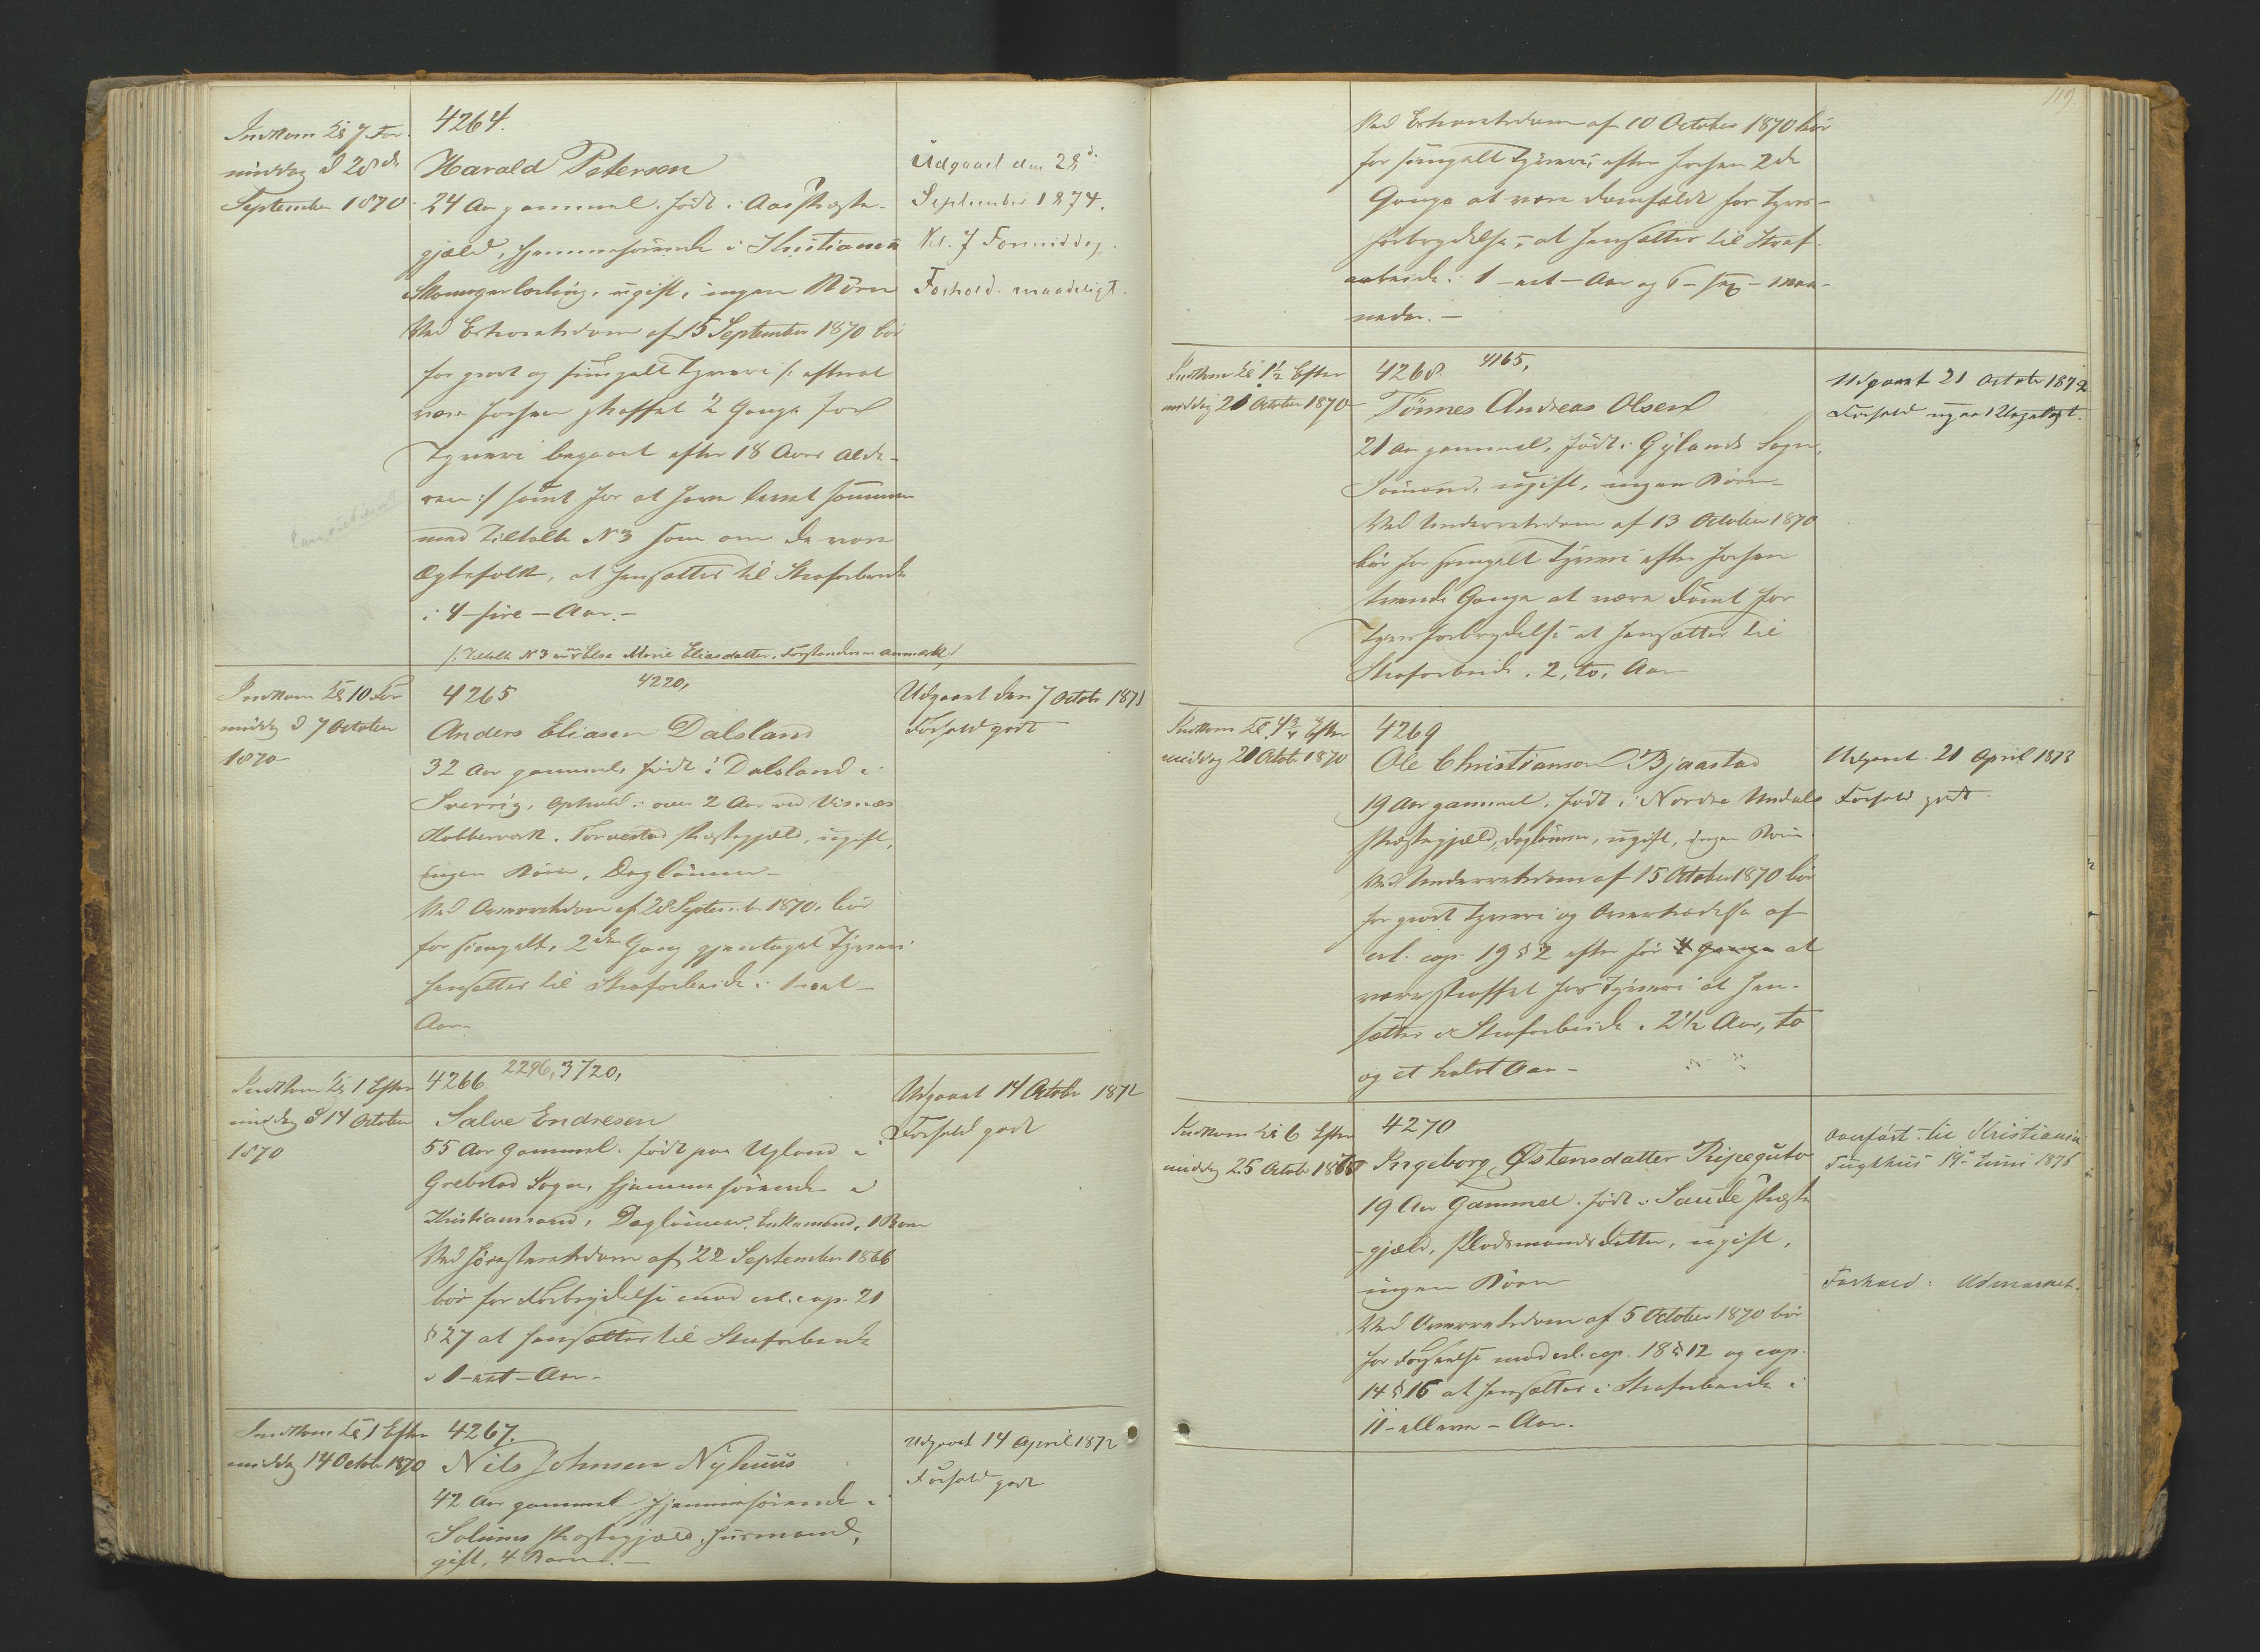 Indkom Kl 7 For-
middag d 28de
September 1870
4264.
Harald Petersen
24 Aar gammel, født i Aas Præste-
gjæld, hjemmehørende i Kristiania
Skomagerlærling, ugift, ingen Børn
Ved Extraretsdom af 15 September 1870 bør
for grovt og simpelt Tyveri /: efterat
være forhen straffet 2 Gange for
Tyveri begaaet efter 18 Aars Alde-
ren :/ samt for at have levet sammen
med Tiltalte No 3 som om de vare
Ægtefolk, at hensættes til Strafarbeide
i 4 - fire - Aar. -
/: Tiltalte No 3 er Else Marie Eliasdatter, Forstanderens Anmærk :/
Udgaaet den 28d.
September 1874.
Kl. 7 Formiddag.
Forhold maadeligt.
Indkom Kl 10 For
middg d 7 October
1870
4265 4220,
Anders Eliasen Dalsland
32 Aar gammel, født i Dalsland i
Sverrig, Ophold i over 2 Aar ved Visnæs
Kobberverk, Torvestad Præstegjæld, ugift,
ingen Børn, Daglønner -
Ved Overretsdom af 28 September 1870, bør
for simpelt, 2den Gang gjentaget Tyveri
hensættes til Strafarbeide i 1 - eet -
Aar -
Udgaaet den 7 Octobr 1871
Forhold godt
Indkom Kl 1 Efter
middag d 14 October
1870
4266 2296, 3720,
Salve Endresen
55 Aar gammel, født paa Ugland i
Grebstad Sogn, hjemmehørende i
Kristianssand, Daglønner, Enkemand, 1 Barn
Ved Høiesteretsdom af 22 September 1866
bør for Forbrydelse mod crl. cap. 21
§ 27 at hensættes til Strafarbeide
i 1 - eet - Aar -
Udgaaet 14 October 1871
Forhold godt
Indkom Kl 1 Efter
middag 14 Octobr 1870
4267.
Nils Johnsen Nyhuus
42 Aar gammel hjemmehørende i
Solums Præstegjæld, Huusmand,
gift, 4 Børn. -
Udgaaet 14 April 1872
Forhold godt
119.
Ved Extraretsdom af 10 October 1870 bør
for simpelt Tyveri, efter forhen 2de
Gange at være domfældt for Tyvs-
forbrydelse, at hensættes til Straf-
arbeide i 1 - eet - Aar og 6 - sex - Maa-
neder. -
Indkom Kl 1½ Efter
middag 21 October 1870
4268 4165,
Tønnes Andreas Olsen
21 Aar gammel, født i Gylands Sogn,
Sømand, ugift, ingen Børn -
Ved Underretsdom af 13 October 1870
bør for simpelt Tyveri efter forhen
tvende Gange at være dømt for
Tyvsforbrydelse at hensættes til
Strafarbeide i 2, to, Aar
Udgaaet 21 October 1872
Forhold
Indkom Kl 4¾ Efter
middag 21 Octobr 1870
4269
Ole Christianson Bjaastad
19 Aar gammel, født i Nordre Undals
Præstegjæld, Daglønner, ugift, ingen Børn
Ved Underretsdom af 15 October 1870 bør
for grovt Tyveri og Overtrædelse af
crl. cap. 19 § 2 efter før 4 Gange at
være straffet for Tyveri at hen-
sættes i Strafarbeide i 2½ Aar, to
og et halvt Aar -
Udgaaet 21 April 1873
Forhold godt
Indkom Kl 6 Efter
middag 25 Octobr 1870
4270
Ingeborg Østensdatter Ripeguto
19 Aar gammel, født i Saude Præste
-gjæld, Pladsmandsdatter, ugift,
ingen Børn
Ved Overretsdom af 5 October 1870 bør
for Forseelse mod crl. cap. 18 § 12 og cap.
14 § 16 at hensættes i Strafarbeide i
11 - elleve - Aar.
Overført til Kristiania
Tugthus 19de Juni 1876
Forhold: Udmærket.